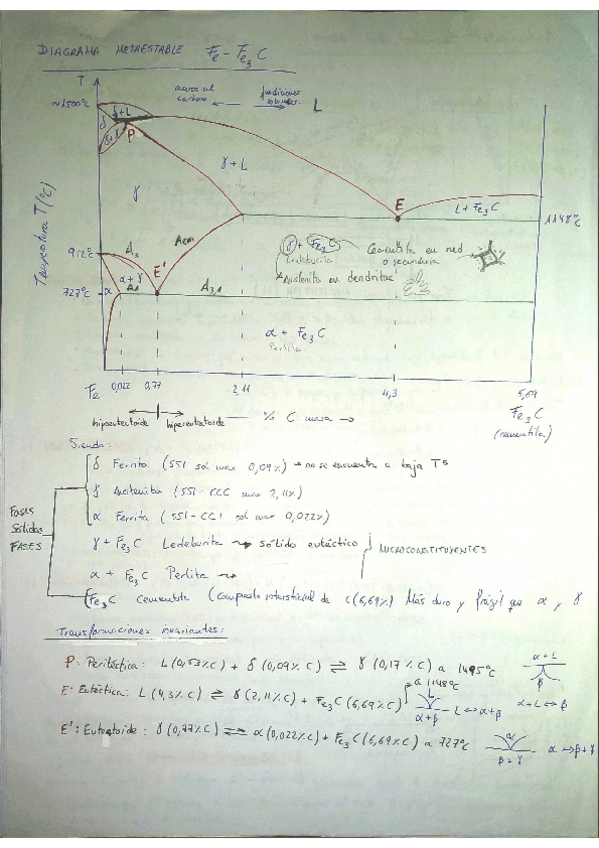 DIAGRAMA METAESTABLE Fe - Fe3C
T
~1500°C
aceros al carbono ← fundiciones → L
δ+L
δ
δ+γ
P
γ+L
γ
Temperatura T(°C)
E
L+Fe3C
1148°C
912°C
A3
Acm
γ + Fe3C
Ledeburita
Cementita en red o secundaria
Austenita en dendritas
E'
α+γ
727°C
α
A1
A3,1
α + Fe3C
Perlita
Fe
0,022
0,77
2,11
4,3
6,69
hipoeutectoide ↔ hipereutectoide
% C masa →
Fe3C
(cementita)
Siendo:
δ Ferrita (SSI sol max 0,09%) → no se encuentra a baja Tª
γ Austenita (SSI-CCC max 2,11%)
α Ferrita (SSI-CCI sol max 0,022%)
FASES SÓLIDAS FASES
γ + Fe3C Ledeburita → sólido eutéctico
MICROCONSTITUYENTES
α + Fe3C Perlita →
Fe3C Cementita (compuesto intersticial de C(6,69%) Más duro y frágil que α y γ
Transformaciones invariantes:
P: Peritéctica: L(0,53%C) + δ(0,09%C) ⇌ γ(0,17%C) a 1495°C
α+L
β
α+L ⇔ β
E: Eutéctica: L(4,3%C) ⇌ γ(2,11%C) + Fe3C(6,69%C) a 1148°C
L
α+β
L ⇔ α+β
E': Eutectoide: γ(0,77%C) ⇌ α(0,022%C) + Fe3C(6,69%C) a 727°C
α
β+γ
α ⇔ β+γ